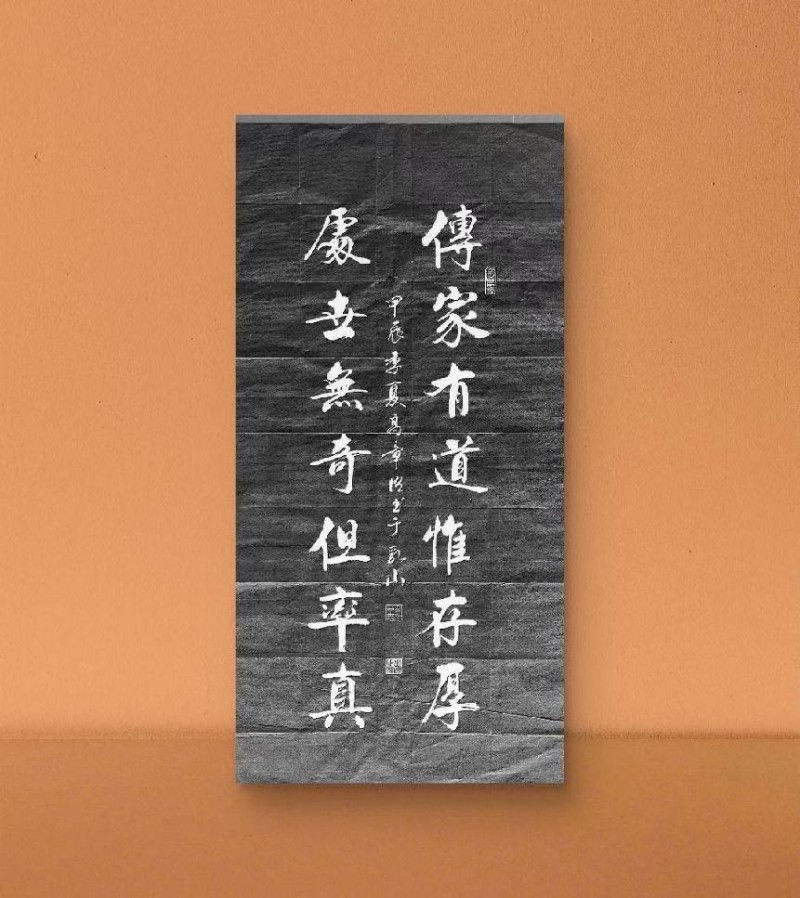 傳家有道惟存厚
處世無奇但率真
甲辰季夏高章臣书于乳山